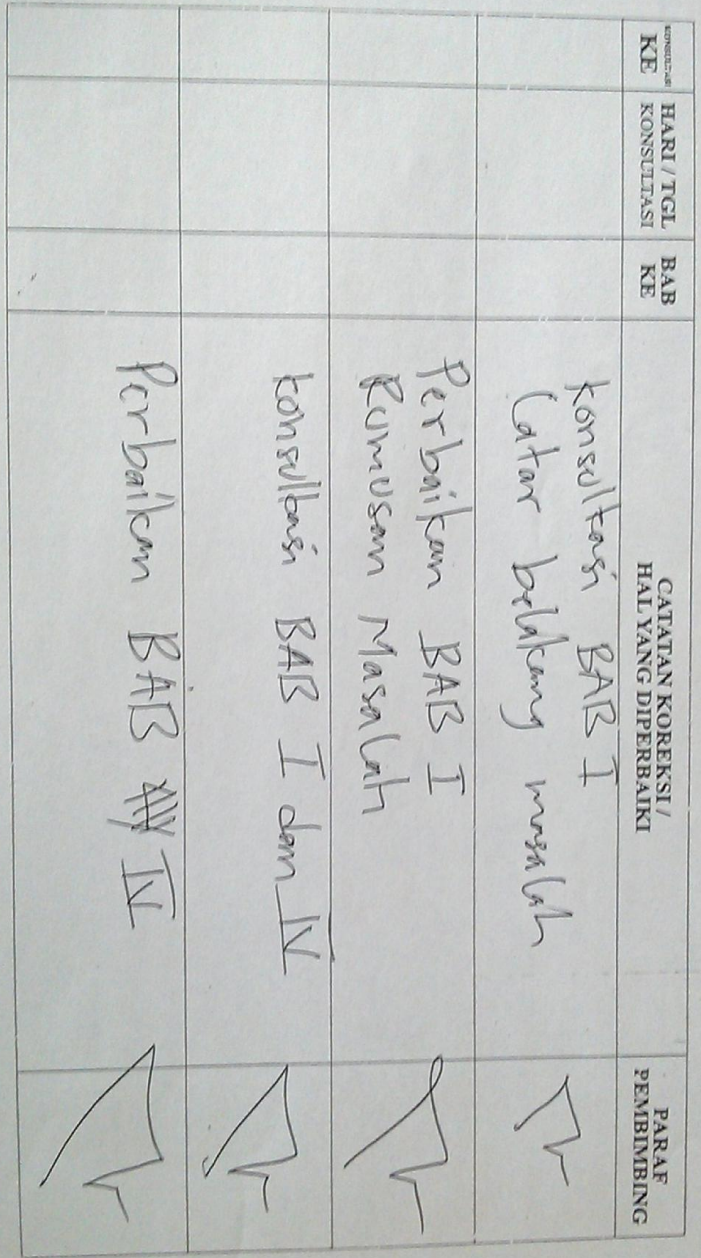 KONSULTASI
KE
HARI / TGL
KONSULTASI
BAB
KE
CATATAN KOREKSI /
HAL YANG DIPERBAIKI
PARAF
PEMBIMBING
Konsultasi BAB I
Latar belakang masalah
Perbaikan BAB I
Rumusan Masalah
Konsultasi BAB I dan IV
Perbaikan BAB IV